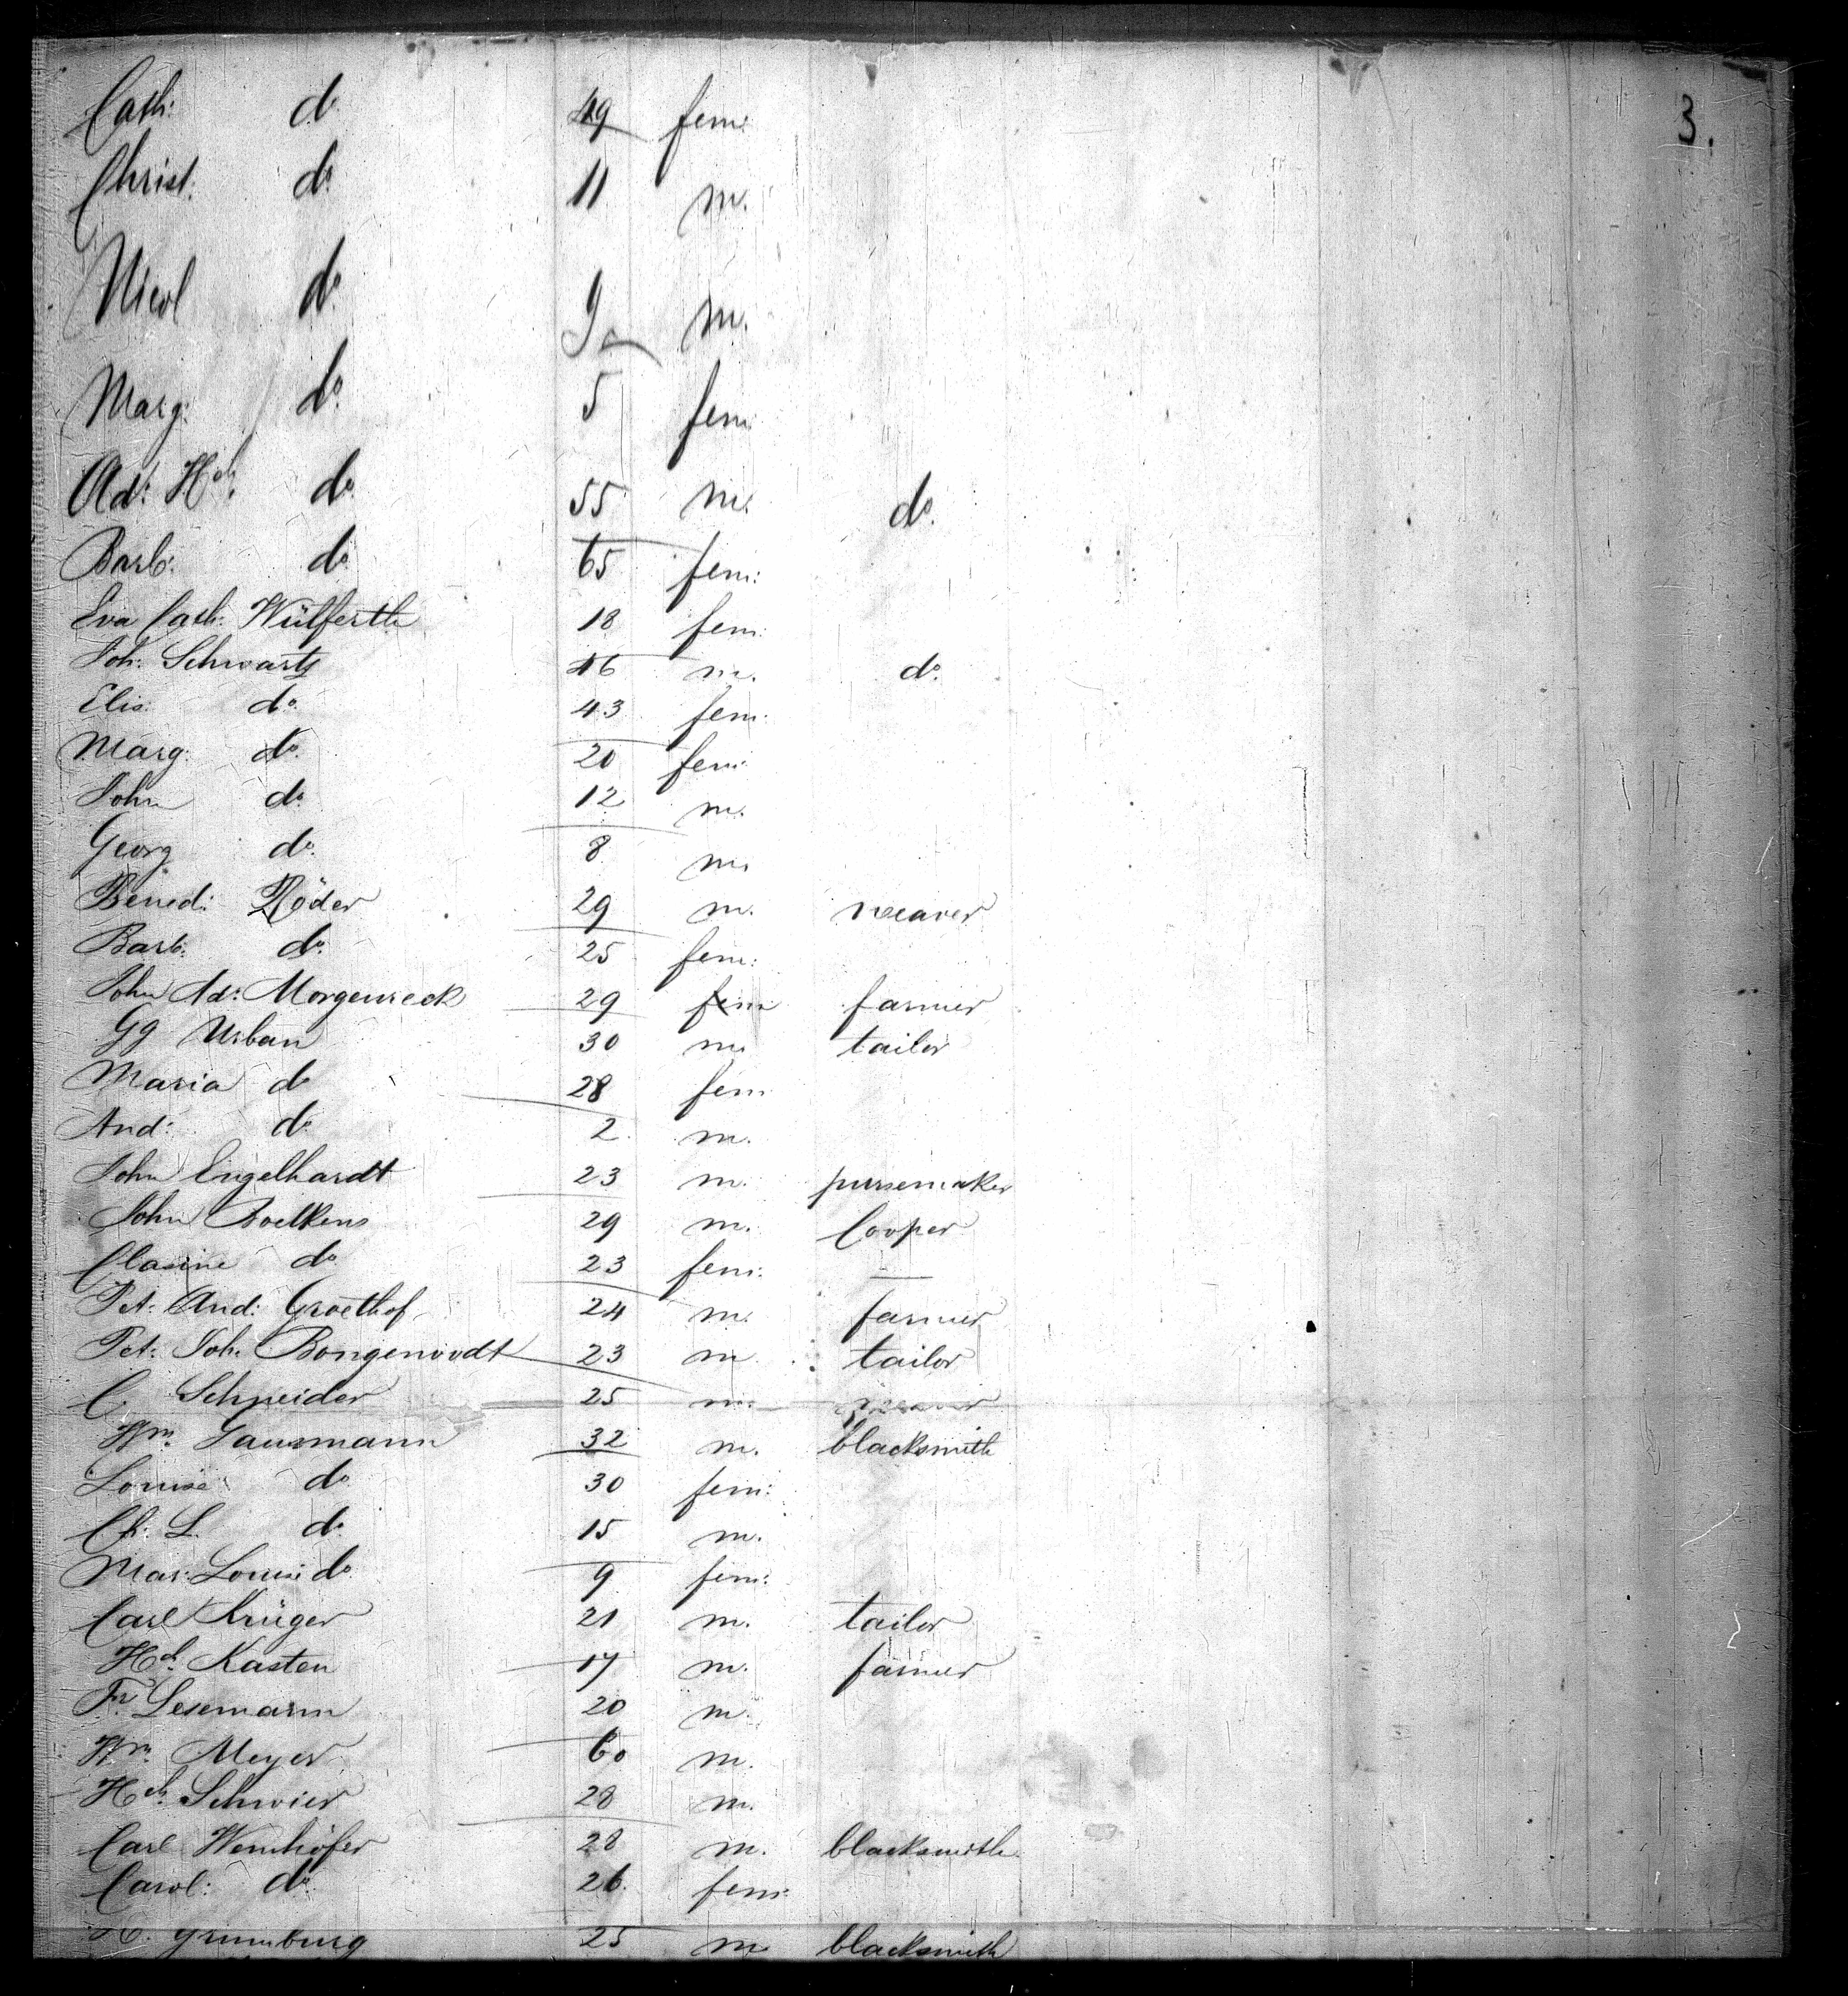 3.
Cath: do 49 fem:
Christ. do 11 m.
Nicol do 9 m.
Marg: do 5 fem
Ad: Hch: do 55 m. do.
Barb: do 65 fem:
Eva Cath: Wülferth 18 fem:
Joh: Schwartz 46 m. do.
Elis: do. 43 fem:
Marg: do. 20 fem:
John do. 12 m.
Georg do. 8 m.
Bened: Röder 29 m. weaver
Barb: do. 25 fem:
John Ad: Morgenreck 29 fem farmer
Gg Urban 30 m. tailor
Maria do 28 fem
And: do 2 m.
John Engelhardt 23 m. pursemaker
John Boelkens 29 m. Cooper
Clasine do 23 fem: —
Pet: And: Groethof 24 m. farmer
Pet: Joh: Bongenoodt 23 m tailor
C. Schneider 25 m. weaver
Wm. Lausmann 32 m. blacksmith
Louise do 30 fem:
Ch: L. do 15 m.
Mar: Louise do 9 fem:
Carl Krüger 21 m. tailor
Hch. Kasten 17 m. farmer
Fr. Lesemann 20 m.
Wm. Meyer 60 m.
Hch. Schwier 28 m.
Carl Wemhöfer 28 m. blacksmith
Carol: do. 26 fem:
H. Grimmburg 25 m blacksmith